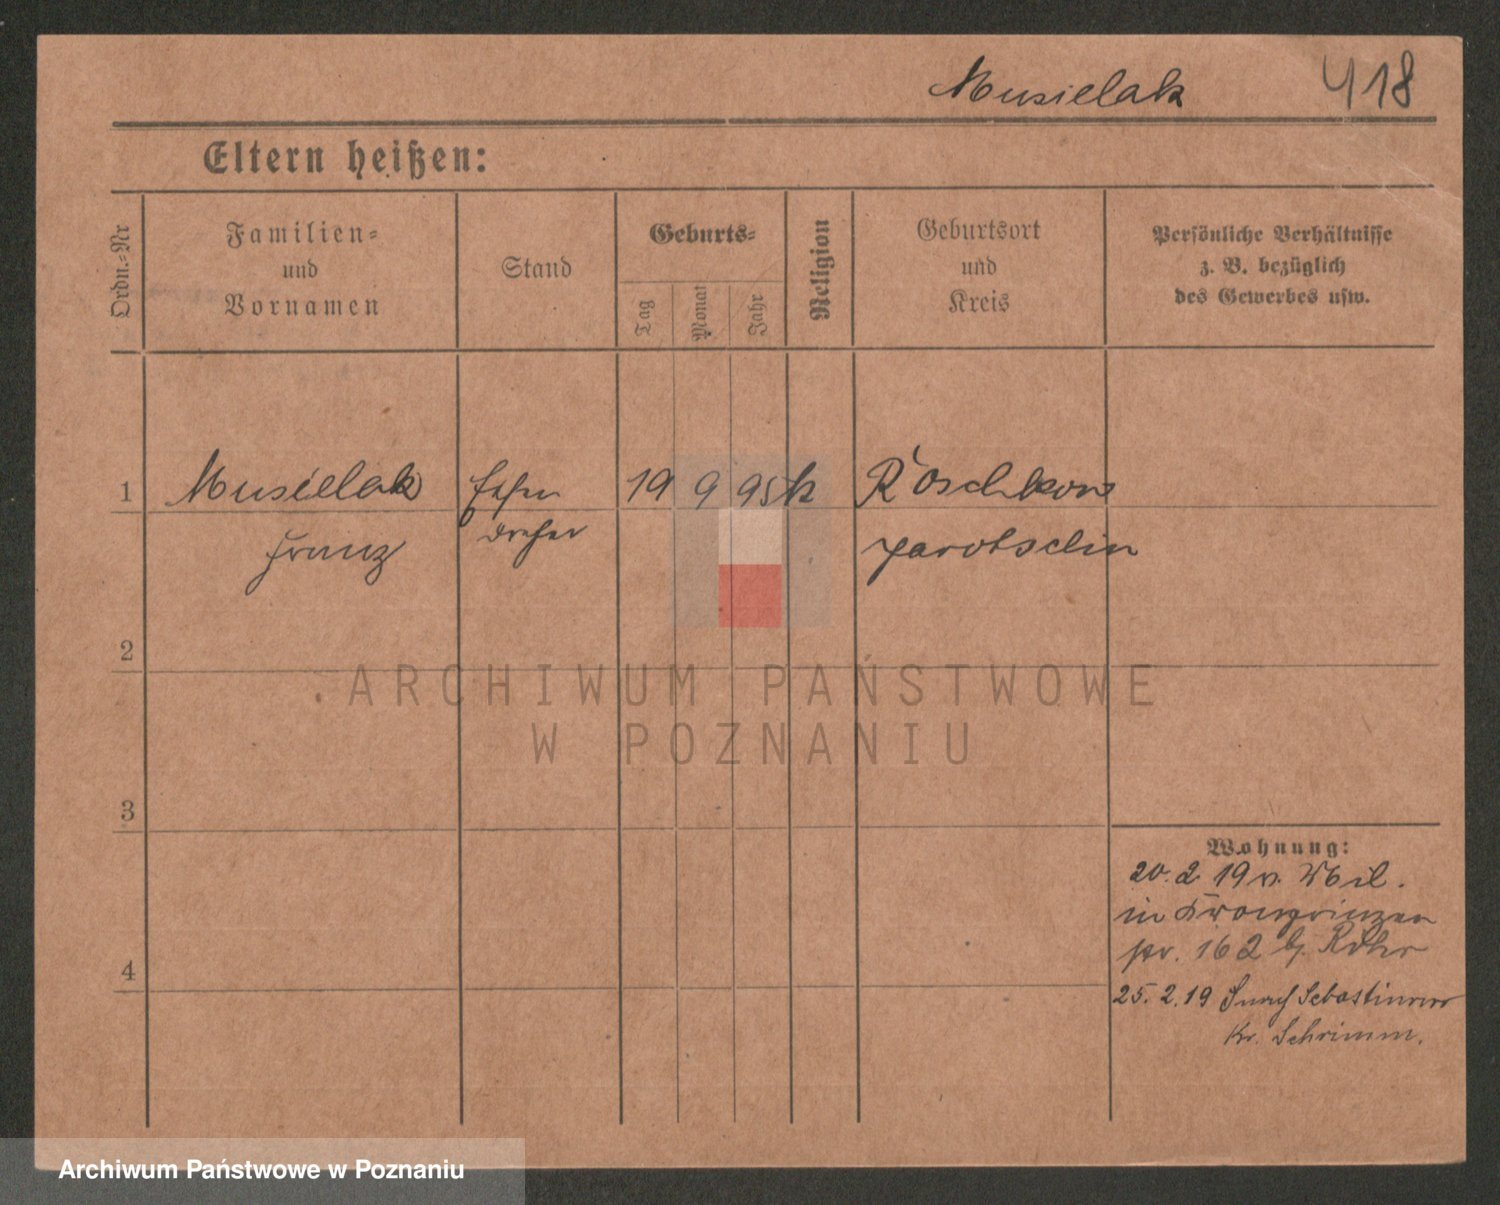 Musielak 418
Eltern heißen:
Ordn.-Nr
Familien-
und
Vornamen
Stand
Geburts-
Tag
Monat
Jahr
Religion
Geburtsort
und
Kreis
Persönliche Verhältnisse
z. B. bezüglich
des Gewerbes usw.
1 Musielak Eisen 19 9 95 k Roschkow
Franz dreher Jarotschin
2
3
4
Wohnung:
20. 2 19 v. Mil.
in Kronprinzen
str. 162 b. Rohr
25. 2. 19 Sebastinowo
Kr. Schrimm.
ARCHIWUM PAŃSTWOWE
W POZNANIU
Archiwum Państwowe w Poznaniu